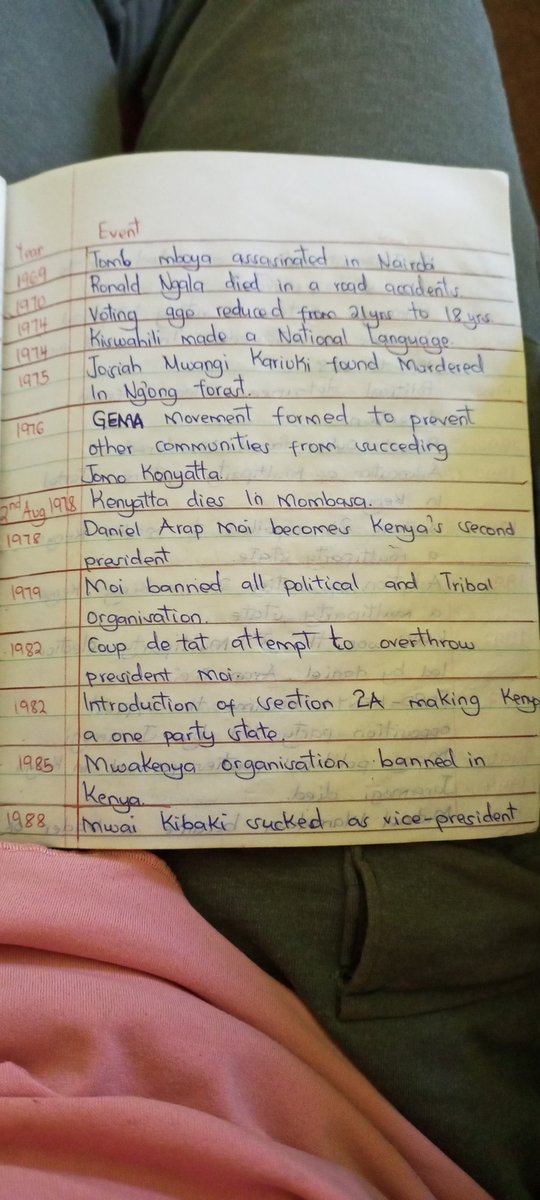 Year Event
1969 Tomb mboya assasinated in Nairobi
1970 Ronald Ngala died in a road accidents.
1974 Voting age reduced from 21yrs to 18yrs.
1974 Kiswahili made a National Language.
1975 Josiah Mwangi Kariuki found Murdered
In Ngong forest.
1976 GEMA Movement formed to prevent
other communities from succeding
Jomo Konyatta.
2nd Aug 1978 Kenyatta dies in Mombasa.
1978 Daniel Arap Moi becomes Kenya's second
president
1979 Moi banned all political and Tribal
Organisation.
1982 Coup de tat attempt to overthrow
president moi.
1982 Introduction of section 2A making Kenya
a one party state.
1985 Mwakenya organisation banned in
Kenya.
1988 Mwai Kibaki sucked as vice-president